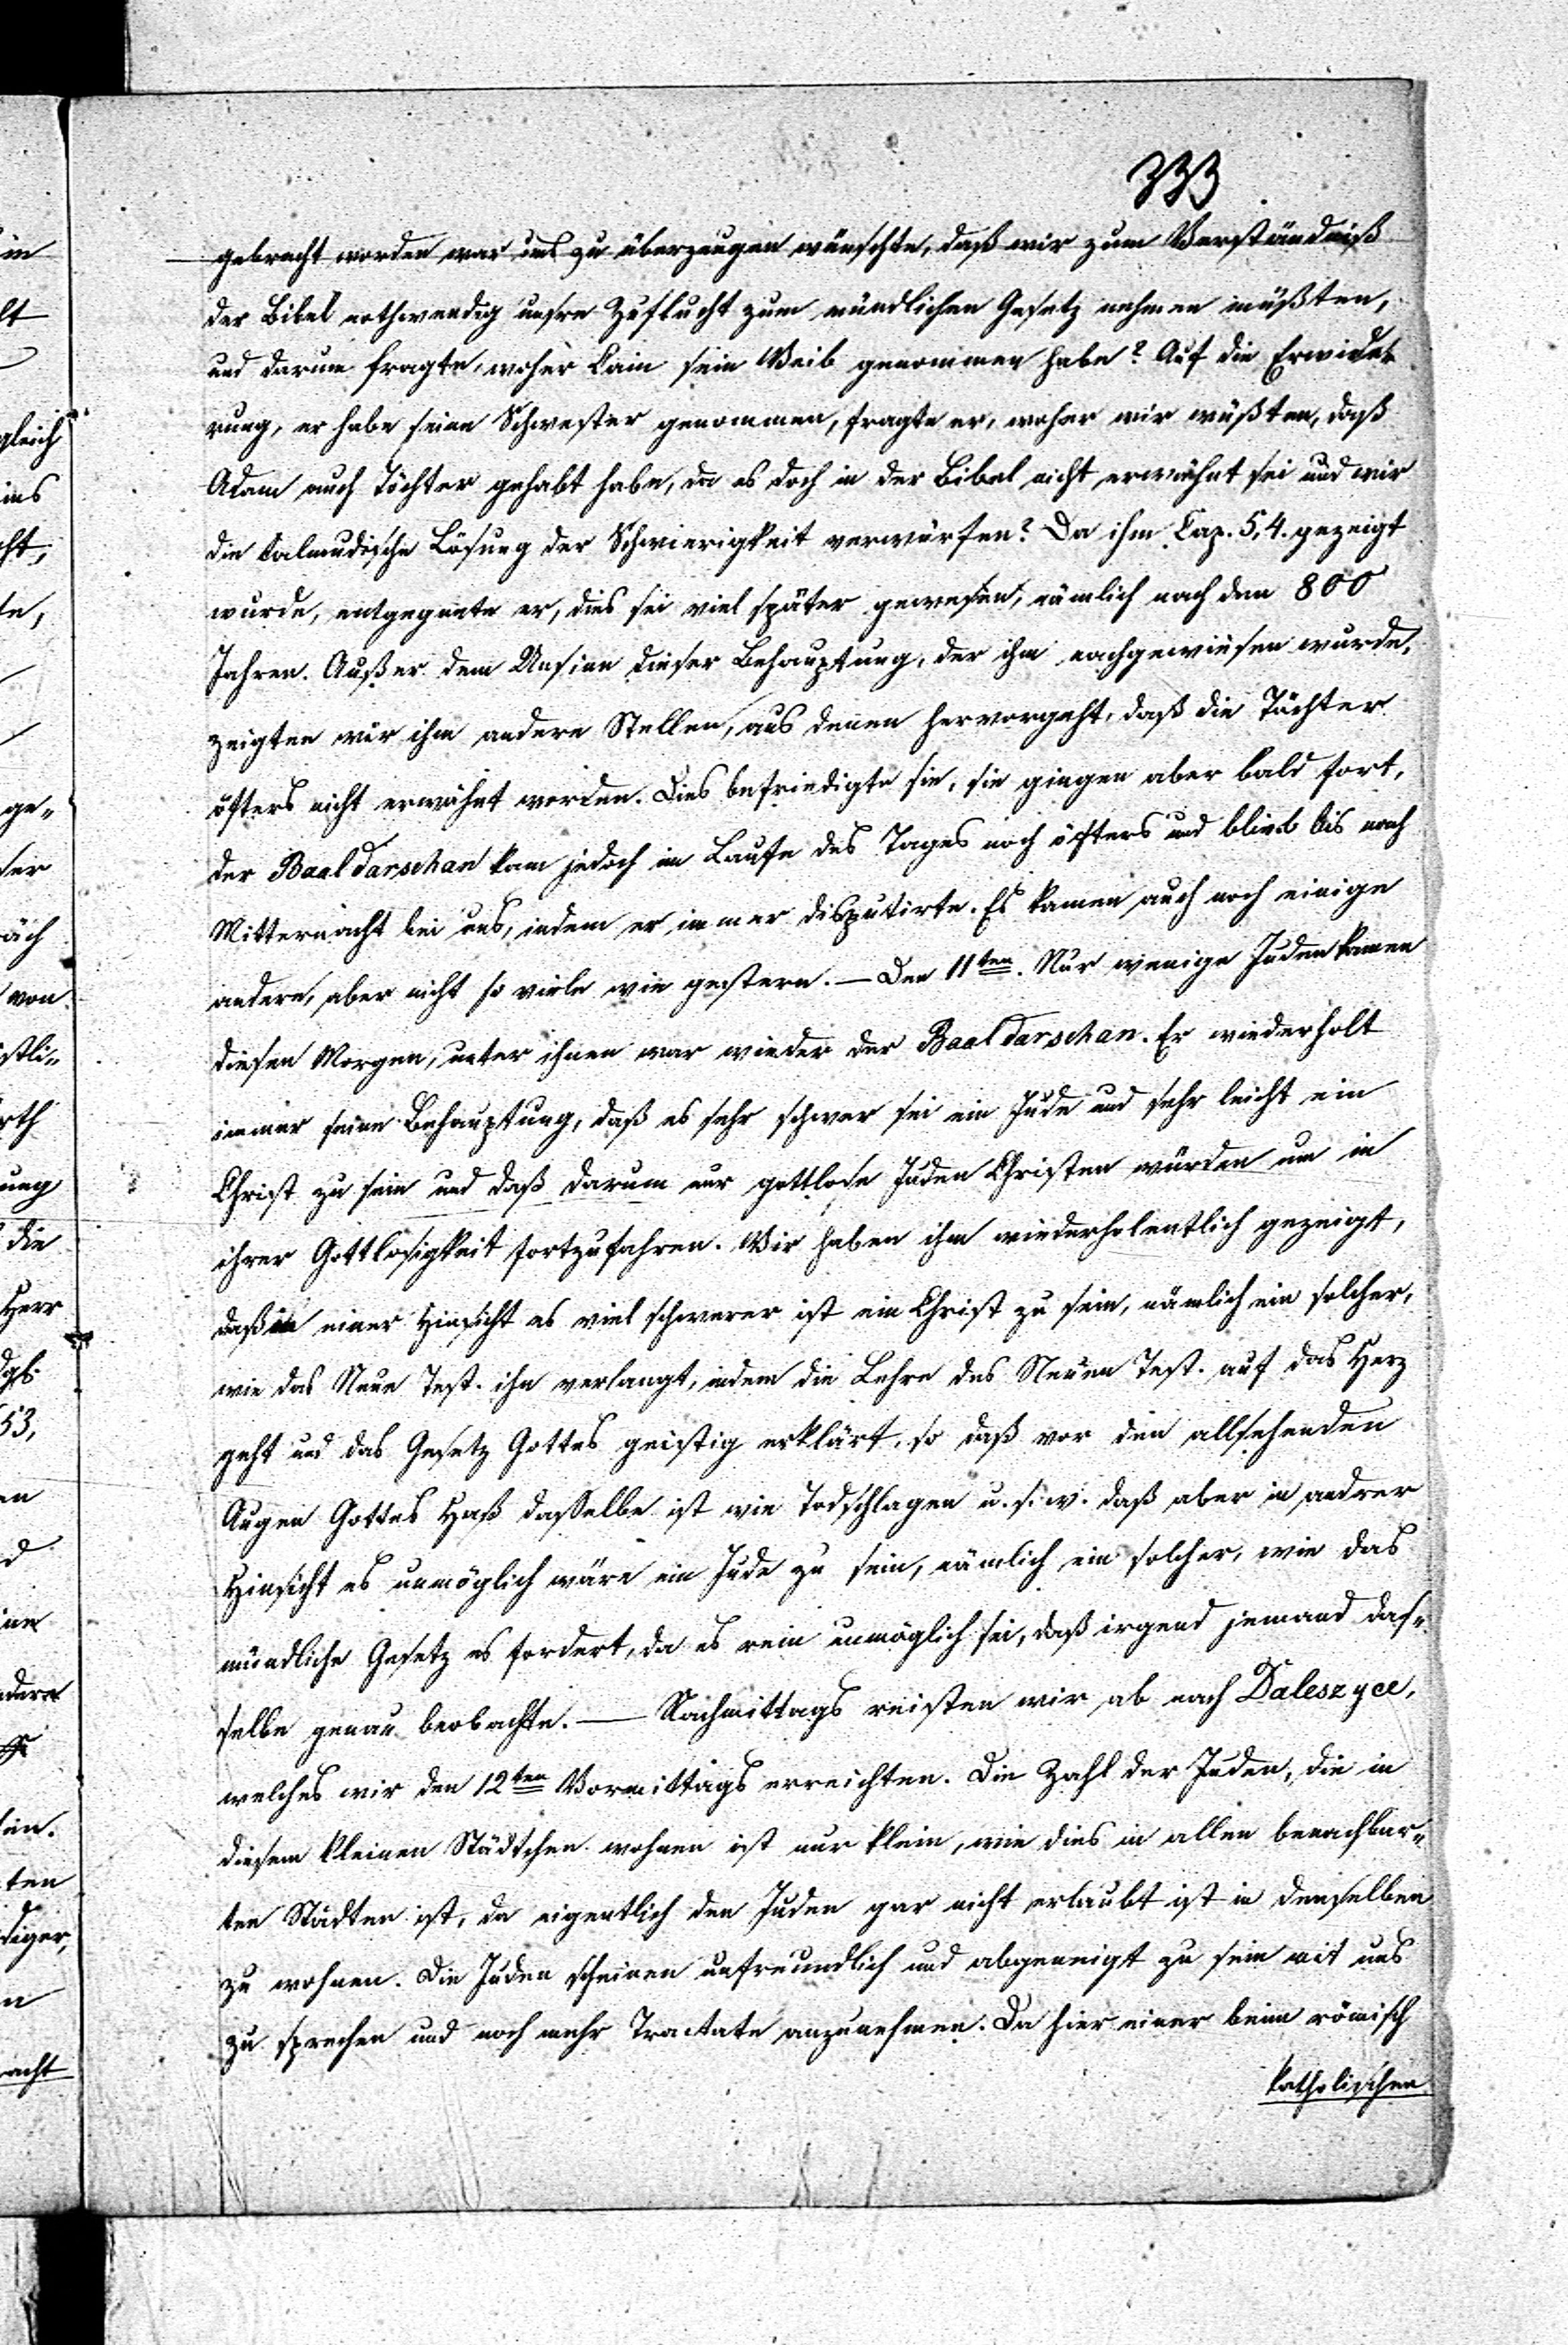 333
gebracht worden war uns zu überzeugen wünschte, daß wir zum Verständniß
der Bibel nothwendig unsre Zuflucht zum mündlichen Gesetz nehmen müßten,
und darum fragte, woher Cain sein Weib genommen habe? Auf die Erwiede
rung, er habe seine Schwester genommen, fragte er, woher wir wüßten, daß
Adam auch Töchter gehabt habe, da es doch in der Bibel nicht erwähnt sei und wir
die talmudische Lösung der Schwierigkeit verwürfen? Da ihm Cap. 5,4. gezeigt
wurde, entgegnete er, dies sei viel später gewesen, nämlich nach den 800
Jahren. Außer dem Unsinn dieser Behauptung, der ihm nachgewiesen wurde,
zeigten wir ihm andere Stellen, aus denen hervorgeht, daß die Töchter
öfters nicht erwähnt werden. Dies befriedigte sie, sie gingen aber bald fort,
der Baal darschan kam jedoch im Laufe des Tages noch öfters und blieb bis nach
Mitternacht bei uns, indem er immer disputirte. Es kamen auch noch einige
andere, aber nicht so viele wie gestern. — Den 11ten. Nur wenige Juden kamen
diesen Morgen, unter ihnen war wieder der Baal darschan. Er wiederholt
immer seine Behauptung, daß es sehr schwer sei ein Jude und sehr leicht ein
Christ zu sein und daß darum nur gottlose Juden Christen würden um in
ihrer Gottlosigkeit fortzufahren. Wir haben ihm wiederholentlich gezeigt,
daß in einer Hinsicht es viel schwerer ist ein Christ zu sein, nämlich ein solcher,
wie das Neue Test. ihn verlangt, indem die Lehre des Neuen Test. auf das Herz
geht und das Gesetz Gottes geistig erklärt, so daß vor den allsehenden
Augen Gottes Haß dasselbe ist wie Todschlagen u. s. w. daß aber in andrer
Hinsicht es unmöglich wäre ein Jude zu sein, nämlich ein solcher, wie das
mündliche Gesetz es fordert, da es rein unmöglich sei, daß irgend jemand das-
selbe genau beobachte. — Nachmittags reisten wir ab nach Daleszyce,
welches wir den 12ten Vormittags erreichten. Die Zahl der Juden, die in
diesem kleinen Städtchen wohnen ist nur klein, wie dies in allen benachbar-
ten Städten ist, da eigentlich den Juden gar nicht erlaubt ist in denselben
zu wohnen. Die Juden scheinen unfreundlich und abgeneigt zu sein mit uns
zu sprechen und noch mehr Tractate anzunehmen. Da hier einer beim römisch
katholischen